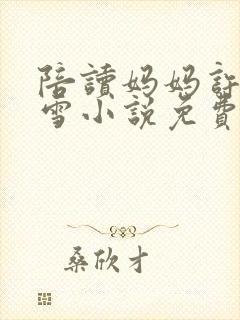 陪讀妈妈許
雪小說免費
桑欣才